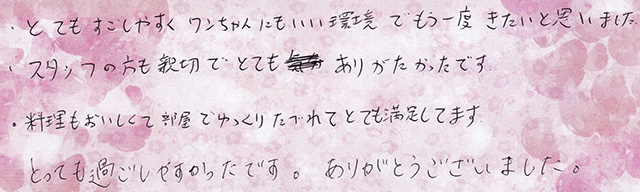 ・とてもすごしやすく ワンちゃんにもいい環境でもう一度きたいと思いました
・スタッフの方も親切でとても ありがたかったです
・料理もおいしくて部屋でゆっくりたべれてとても満足してます
とっても過ごしやすかったです。ありがとうございました。